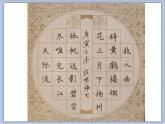 故人西
辞黄鹤楼烟
花三月下扬州
孤帆远影碧空
尽唯见长江
天际流